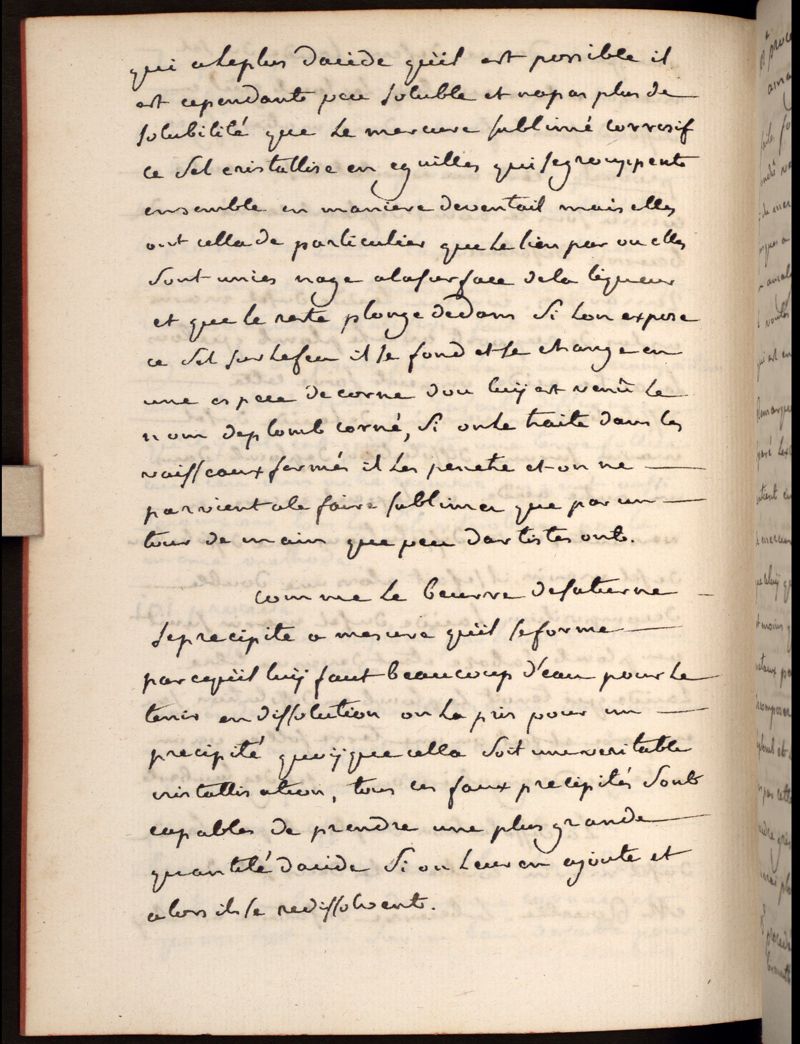 qui a leplus dacide quïl est possible il
est cependante peu soluble et napas plus de
solubilité que Le mercure sublimé corrosif
ce Sel cristallise en eguilles qui segrouppente
ensemble en maniere deventail mais elles
ont cella de particulier que Le lien par ou elles
sont unies nage alasurface dela liqueur
et que le reste plonge dedans Si Lon expose
ce Sel sur Lefeu il se fond et se change en
une espece de corne dou luÿ est venü Le
nom deplomb corné, Si onle traite dans les
vaisseaux fermés il Les penetre et on ne
parvient ale faire sublimer que par un
tour de main que peu dartistes onte.
comme Le beurre desaturne
Seprecipite a mesure quïl seforme
parcequïl luÿ faut beaucoup d'eau pour Le
tenir endissolution on La pris pour un
precipité quoÿque cella Soit une veritable
cristallisation, tous ces faux precipités Sont
capables de prendre une plus grande
quantité dacide Si on Leur en ajoute et
alors ils se redissolvente.